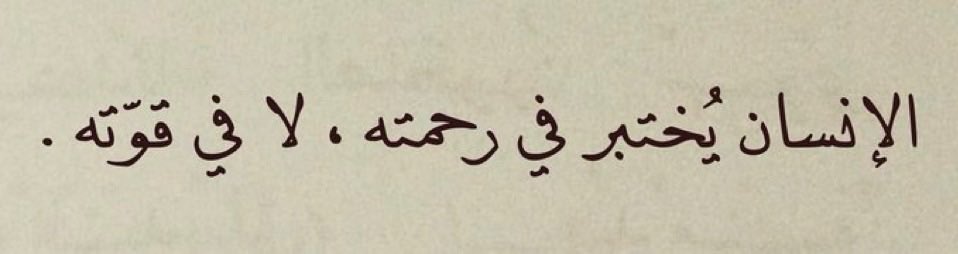 الإنسان يُختبر في رحمته ، لا في قوّته .